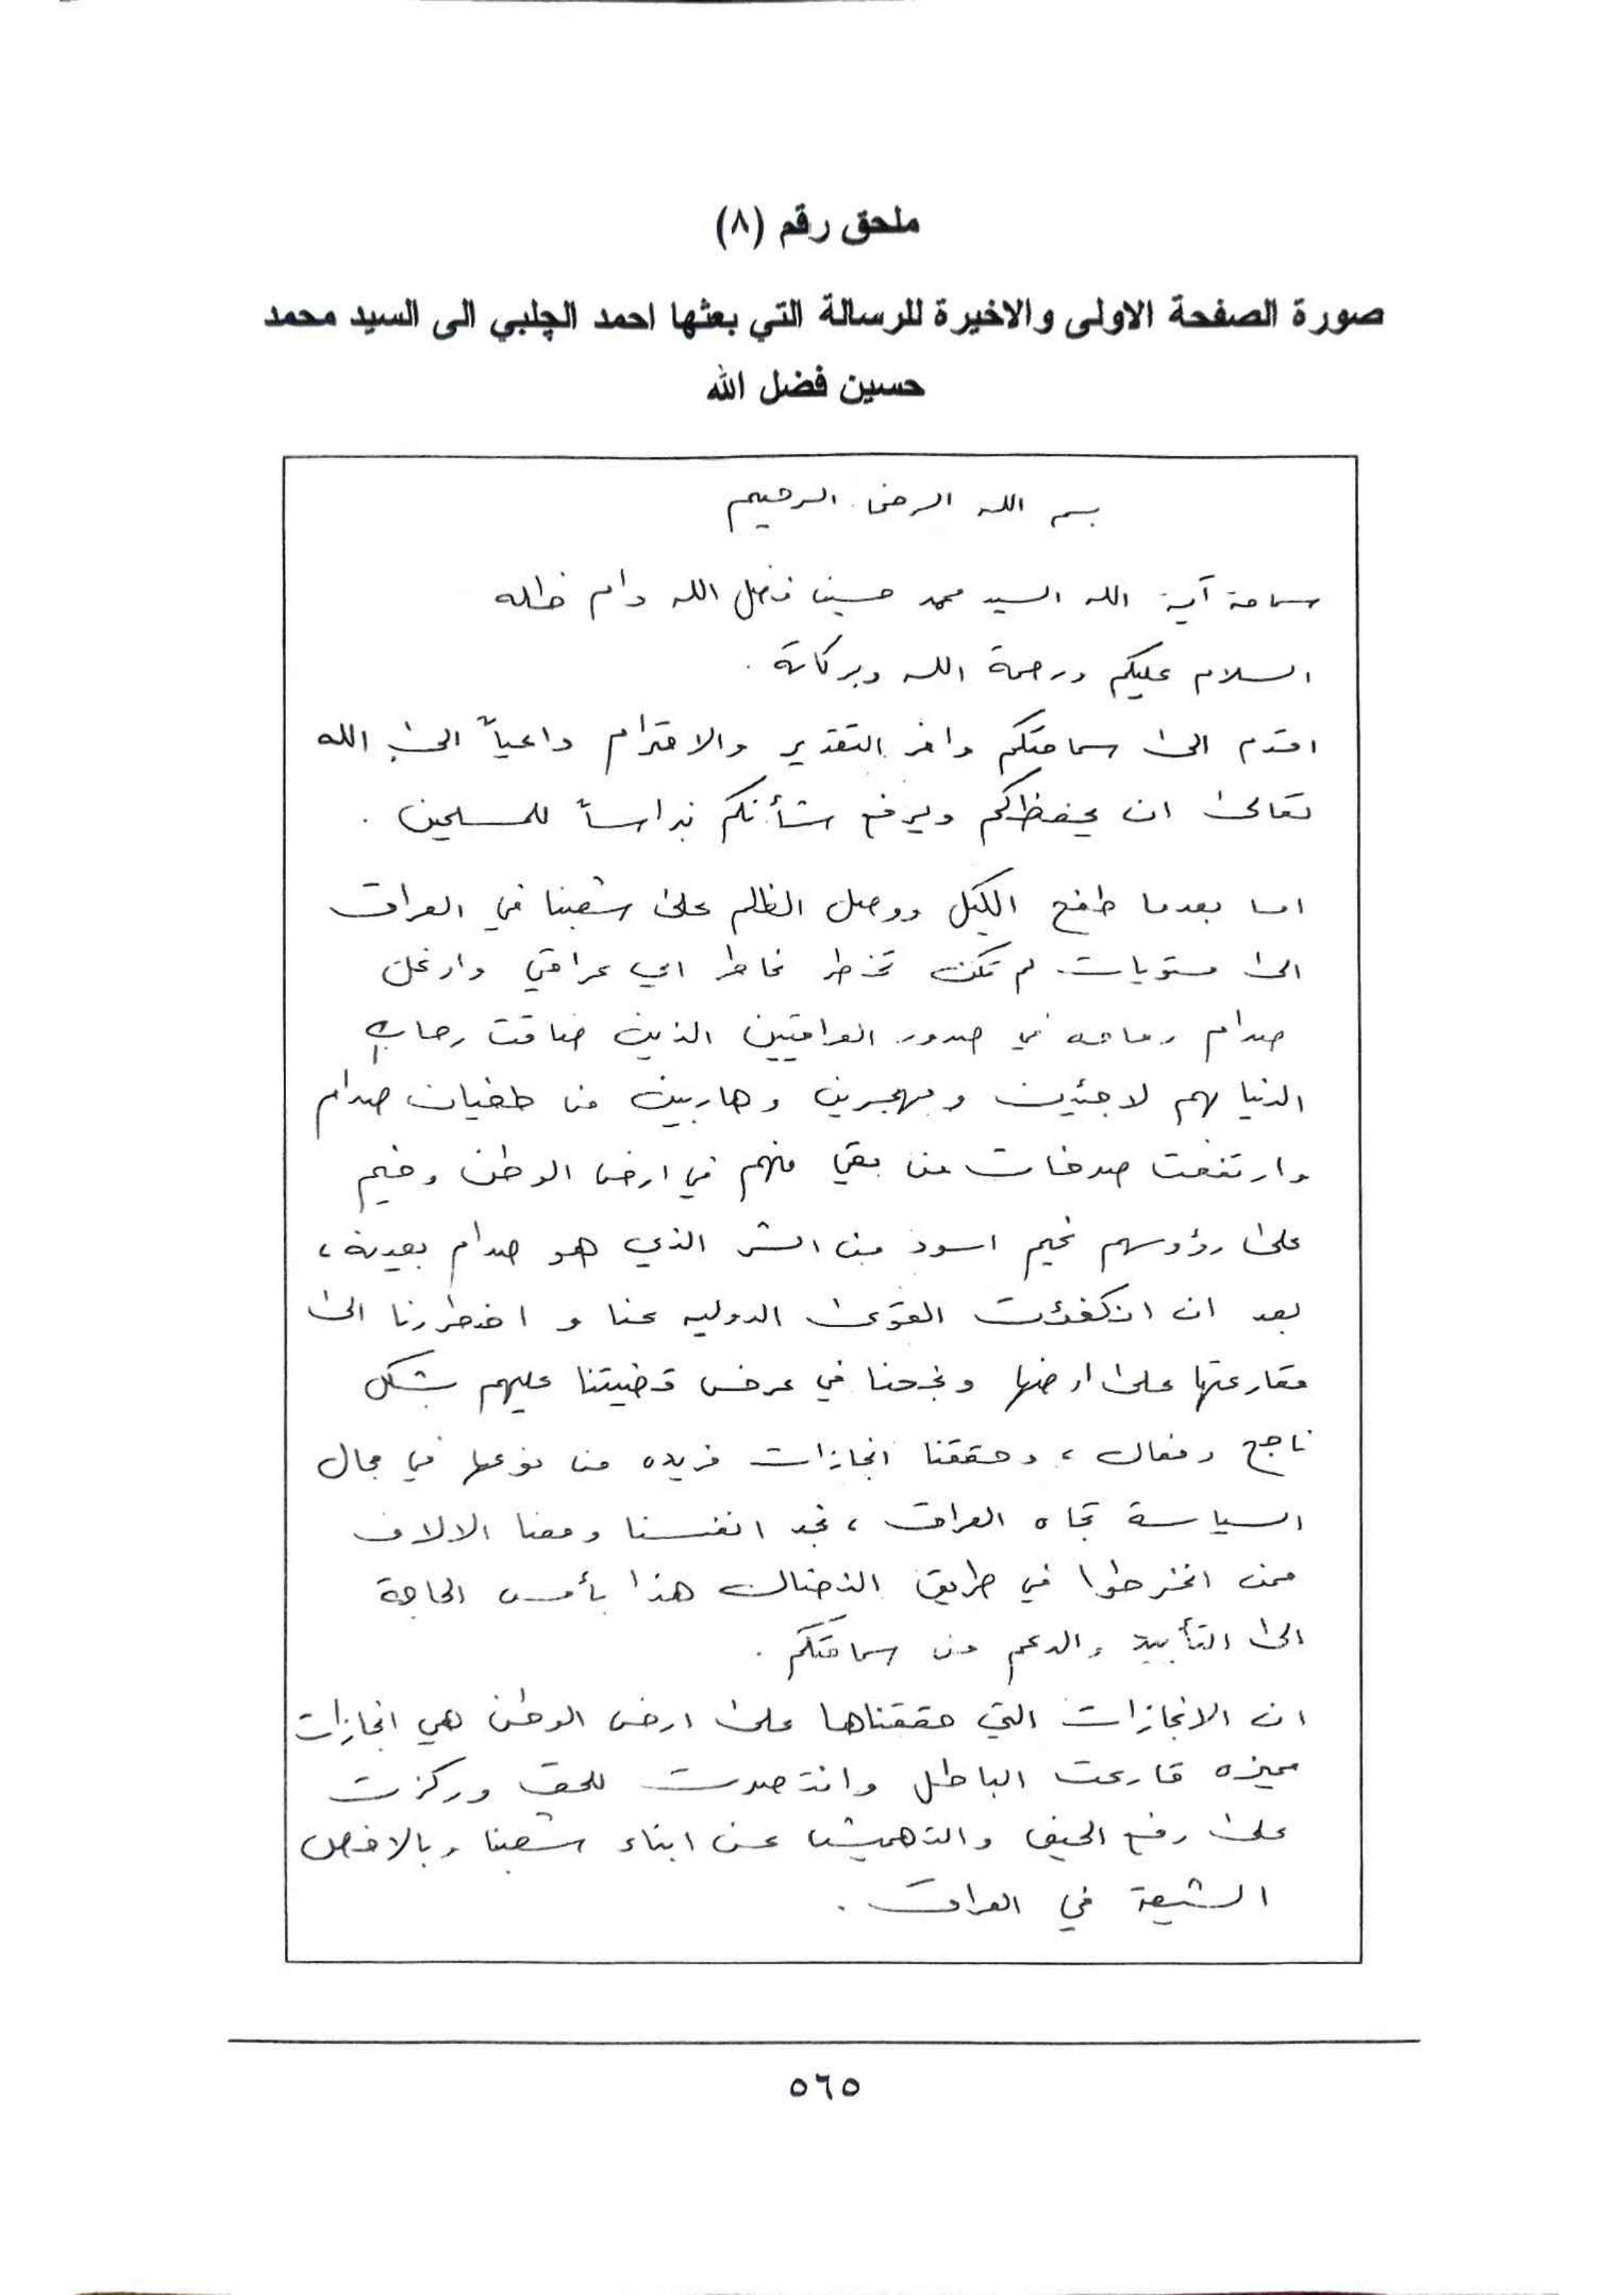 ملحق رقم (٨)
صورة الصفحة الاولى والاخيرة للرسالة التي بعثها احمد الچلبي الى السيد محمد
حسين فضل الله
بسم الله الرحمن الرحيم
سماحة آية الله السيد محمد حسين فضل الله دام ظله
السلام عليكم ورحمة الله وبركاته .
اقدم الى سماحتكم وافر التقدير والاحترام داعياً الى الله
تعالى ان يحفظكم ويرفع شأنكم نبراساً للمسلمين .
اما بعدما طفح الكيل ووصل الظلم على شعبنا في العراق
الى مستويات لم تكن تخطر بخاطر اي عراقي واوغل
صدام رماحه في صدور العراقيين الذين ضاقت رحاب
الدنيا بهم لاجئين ومهجرين وهاربين من طغيان صدام
وارتفعت صرخات من بقي منهم في ارض الوطن وخيم
على رؤوسهم غيم اسود من الشر الذي هو صدام بعينه ،
بعد ان انكفئت القوى الدوليه عنا و اضطررنا الى
مقارعتها على ارضها ونجحنا في عرض قضيتنا عليهم بشكل
ناجح وفعال ، وحققنا انجازات فريده من نوعها في مجال
السياسة تجاه العراق ، نجد انفسنا ومعنا الالاف
ممن انخرطوا في طريق النضال هذا بأمس الحاجة
الى التأييد والدعم من سماحتكم .
ان الانجازات التي حققناها على ارض الوطن هي انجازات
مميزه قارعت الباطل وانتصرت للحق وركزت
على رفع الحيف والتهميش عن ابناء شعبنا وبالاخص
الشيعة في العراق .
٥٦٥